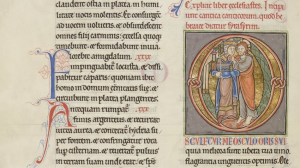 claudent ostia in platea. in humi
litate uocis molentis. & consurgent
ad uocem uolucris. & obsurdescent
omnes filie carminis. excelsa quoq;
timebunt & formidabunt in uia.
Florebit amigdalum. XXX
inpinguabitur locusta. & dis
sipabitur capparis: quoniam ibit
homo in domum eternitatis sue: &
circuibunt in platea plangentes.
rumpatur XXXI
funis argenteus. & recurrat
uitta aurea. & conteratur hydria su
per fontem. & confringatur rota
super cisternam. & reuertatur pul
uis in terram suam unde erat. & sp
Explicit liber ecclesiastes. In
cipiunt cantica canticorum. quod he
braice dicitur syrasyrim.
SCVLETVR ME OSCVLO ORIS SVI
quia meliora sunt ubera tua uino.
flagrantia unguentis optimis.